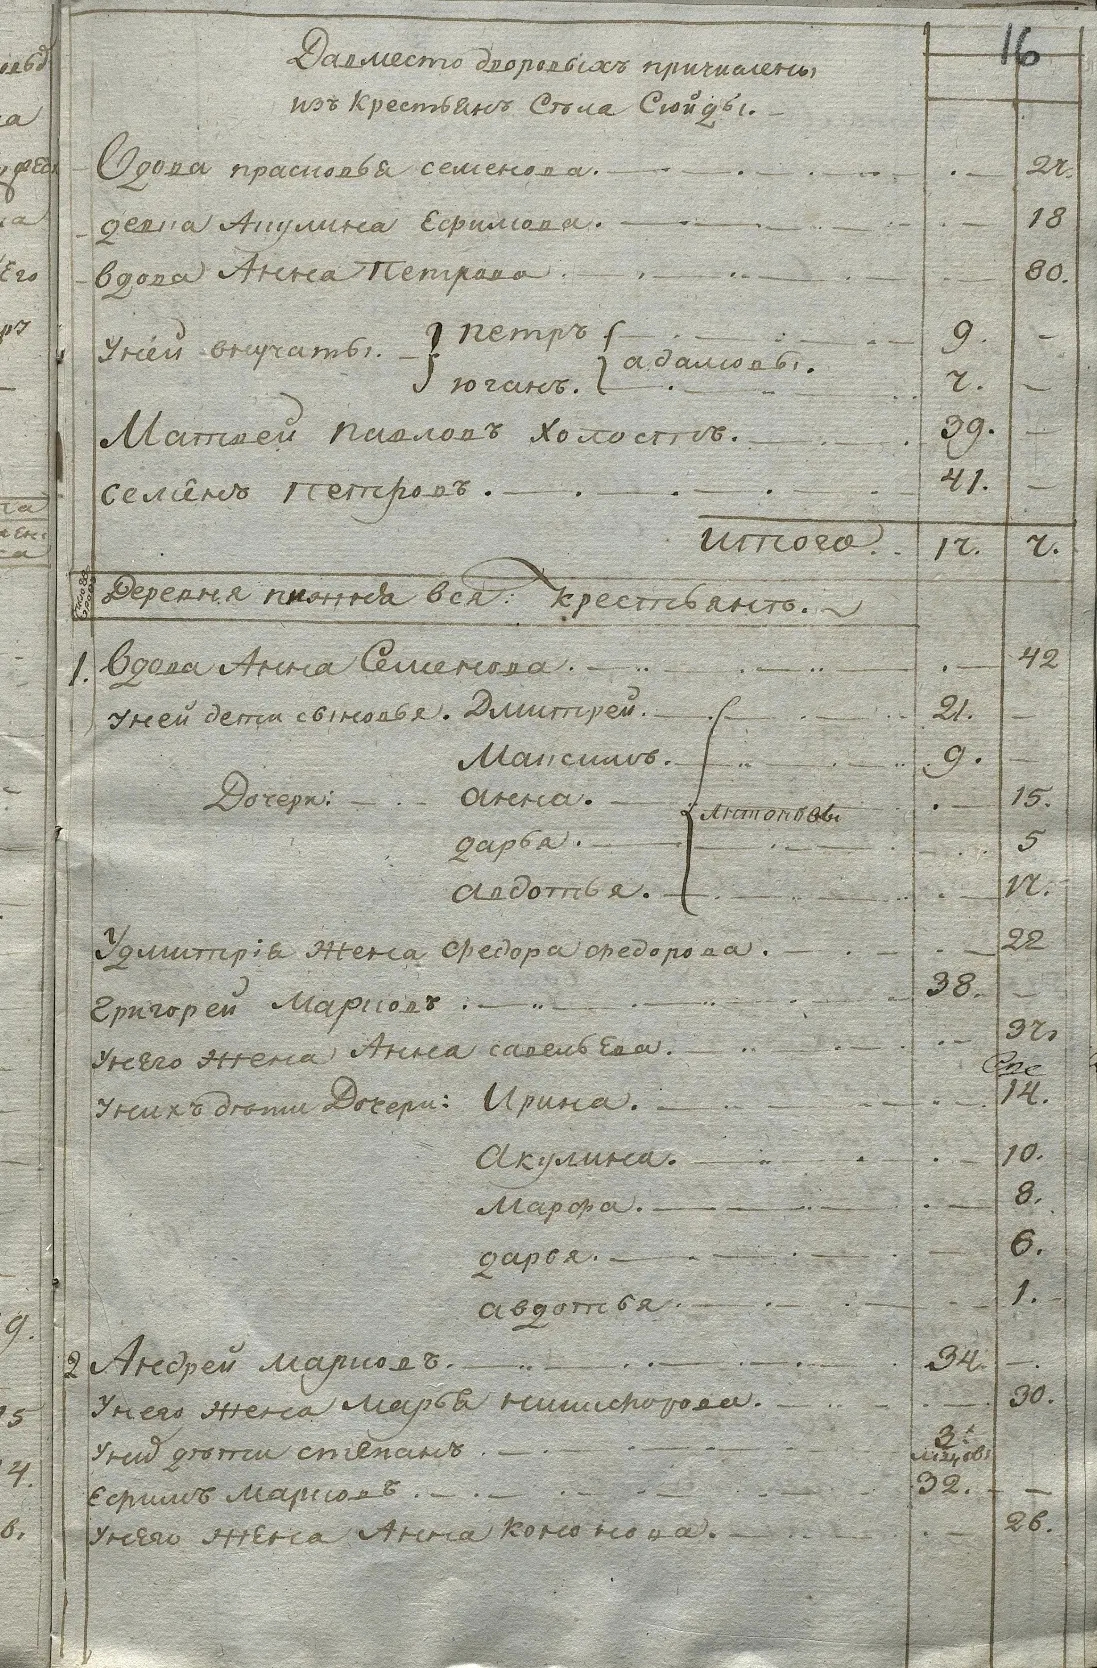 16
Давместо дворовыхъ причислены
изъ крестьянъ Села Сюйды.
Вдова прасковья семенова. 27.
девка Акулина Ефимова. 18
вдова Анна Петрова 80.
Унеи внучаты. петръ адамовы. 9. —
юганъ. 7. —
Матвеи павловъ холостъ. 39. —
семенъ петровъ. 41. —
итого. 17. 7.
Деревня пижня вся: крестьянъ.
1. вдова Анна Семенова. 42
унеи дети сыновья. Дмитреи. 21. —
Максимъ. 9. —
Дочери: анна. Антоновы 15.
дарья. 5
авдотья. 17.
Удмитрія жена Федора федорова. 22
григореи Марковъ. 38. —
унего жена Анна савельева. 37.
унихъ дѣти Дочери: Ирина. 14.
Акулина. 10.
Марфа. 8.
дарья. 6.
авдотья. 1.
2 Андреи марковъ. 34. —
унего жена марья никифорова. 30.
уних дѣти степанъ 3.
ефимъ марковъ. 32. —
унего жена Анна кононова. 26.